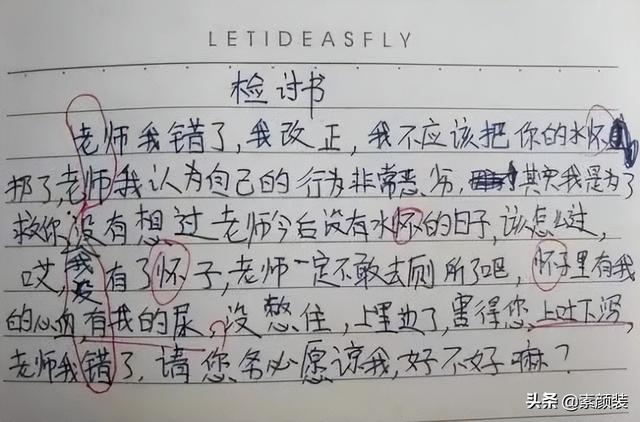 LETIDEASFLY
检讨书
老师我错了,我改正,我不应该把你的水怀
扔了,老师我认为自己的行为非常恶劣,其实我是为了
救你,没有想过老师今后没有水怀的日子,该怎么过,
哎,我没有了怀子,老师一定不敢去厕所了吧,怀子里有我
的心血,有我的尿,没憋住,上里边了,害得您上吐下泻,
老师我错了,请您务必愿谅我,好不好嘛?
头条 @素颜装